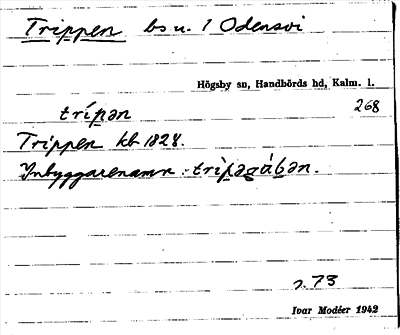 Trippen bs u. 1 Odensvi
Högsby sn, Handbörds hd, Kalm. l.
trípən 268
Trippen kb 1828.
Inbyggarenamn: trìpəgábən.
s. 73
Ivar Modéer 1942